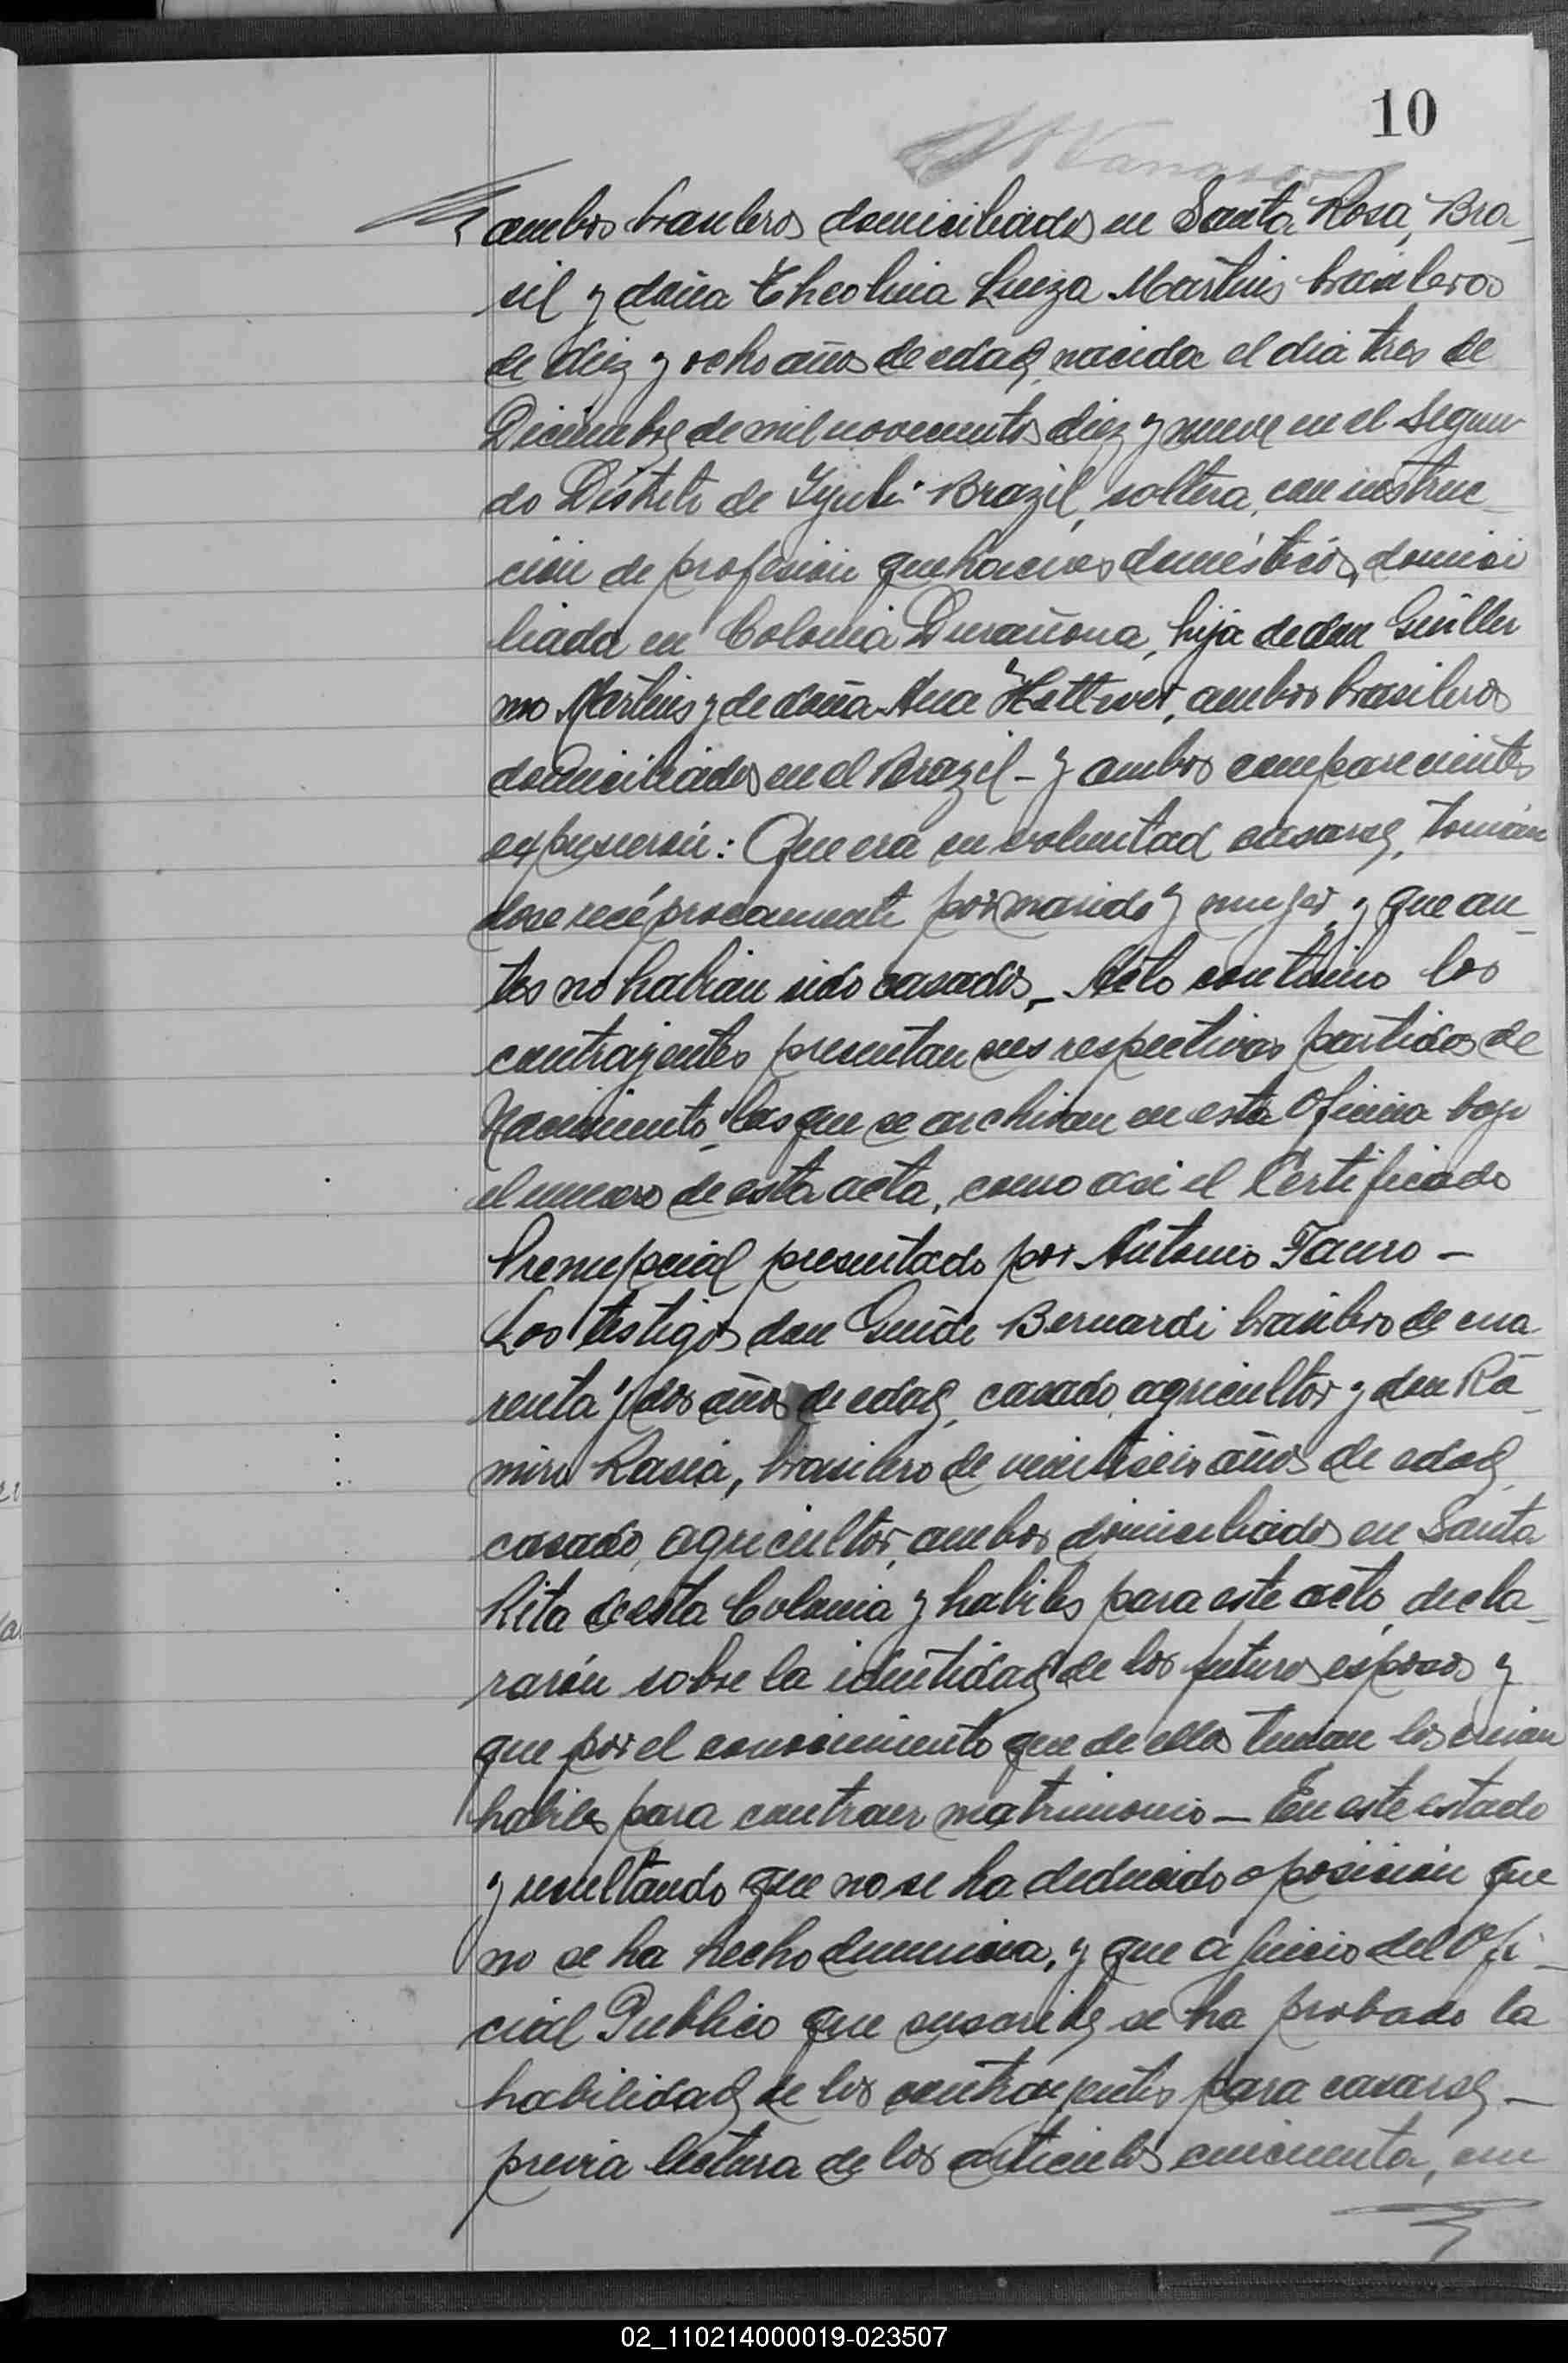 10
ambos brasileros domiciliados en Santa Rosa, Bra_
sil y doña Theolina Luiza Martins brasileros
de diez y ocho años de edad, nacida el dia tres de
Diciembre de mil novecientos diez y nueve en el Segun
do Distrito de Yjuhi Brazil, soltera, con instruc_
cion de profesion quehaceres domésticos, domici
liada en Colonia Durañona, hija de don Guiller
mo Martins y de doña Ana Hettwer, ambos brasileros
domiciliados en el Brazil - y ambos comparecientes
expusierón: Que era su voluntad casarse, tomán
dose reciprocamente por marido y mujer, y que an_
tes no habian sido casados_ Acto continuo los
contrayentes presentan sus respectivas partidas de
Nacimiento, las que se archivan en esta Oficina bajo
el numero de esta acta, como asi el Certificado
Prenupcial presentado por Antonio Fauro -
Los testigos don Guido Bernardi brasilero de cua_
renta y dos años de edad, casado, agricultor y don Ra_
miro Rasia, brasilero de veintiseis años de edad,
casado, agricultor, ambos domiciliados en Santa
Rita de esta Colonia y habiles para este acto, decla_
rarón sobre la identidad de los futuros esposos y
que por el conocimiento que de ellos tenian los creian
habiles para contraer matrimonio - En este estado
y resultando que no se ha deducido oposicion que
no se ha hecho denuncia, y que a juicio del Ofi_
cial Publico que suscribe se ha probado la
habilidad de los contrayentes para casarse -
previa lectura de los articulos cincuenta, cin
02_110214000019-023507